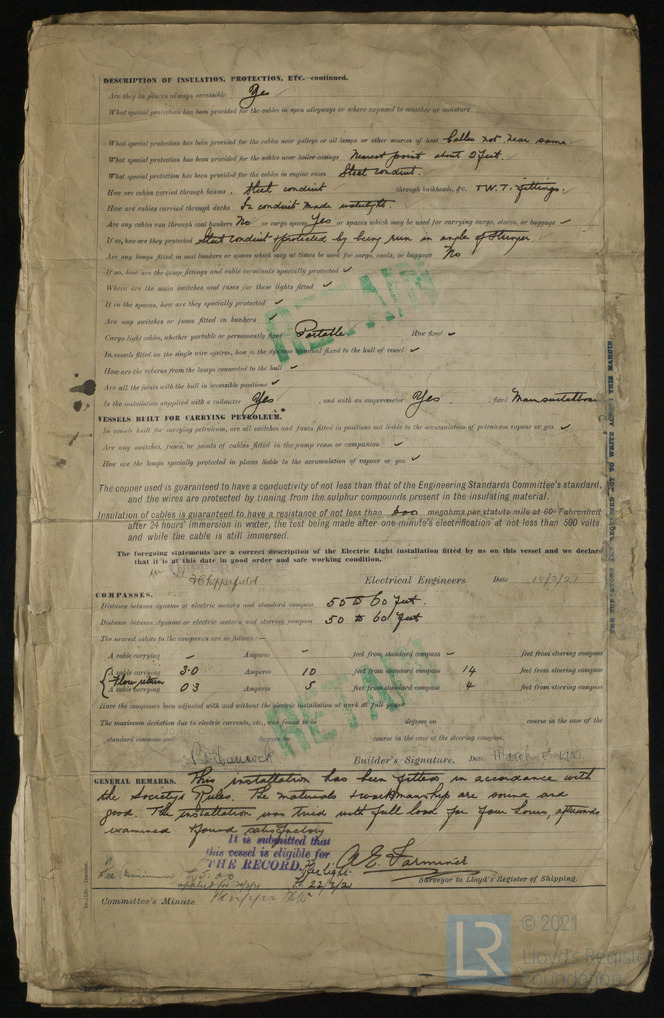 DESCRIPTION OF INSULATION, PROTECTION, ETC.—continued.
Are they in places always accessible Yes ✓
What special protection has been provided for the cables in open alleyways or where exposed to weather or moisture
What special protection has been provided for the cables near galleys or oil lamps or other sources of heat Cables not near same
What special protection has been provided for the cables near boiler casings Nearest point about 2 feet.
What special protection has been provided for the cables in engine room Steel conduit.
How are cables carried through beams. Steel conduit through bulkheads, &c. T W.T. fittings.
How are cables carried through decks In conduit made watertight
Are any cables run through coal bunkers No or cargo spaces Yes or spaces which may be used for carrying cargo, stores, or baggage ✓
If so, how are they protected Steel conduit & protected by being run in angle of Stringer.
Are any lamps fitted in coal bunkers or spaces which may at times be used for cargo, coals, or baggage No
If so, how are the lamp fittings and cable terminals specially protected ✓
Where are the main switches and fuses for these lights fitted ✓
If in the spaces, how are they specially protected ✓
Are any switches or fuses fitted in bunkers ✓
Cargo light cables, whether portable or permanently fixed Portable How fixed ✓
In vessels fitted on the single wire system, how is the dynamo terminal fixed to the hull of vessel ✓
How are the returns from the lamps connected to the hull ✓
Are all the joints with the hull in accessible positions ✓
Is the installation supplied with a voltmeter Yes , and with an amperemeter Yes , fixed Main switchboard
VESSELS BUILT FOR CARRYING PETROLEUM.
In vessels built for carrying petroleum, are all switches and fuses fitted in positions not liable to the accumulation of petroleum vapour or gas ✓
Are any switches, fuses, or joints of cables fitted in the pump room or companion ✓
How are the lamps specially protected in places liable to the accumulation of vapour or gas ✓
The copper used is guaranteed to have a conductivity of not less than that of the Engineering Standards Committee's standard,
and the wires are protected by tinning from the sulphur compounds present in the insulating material.
Insulation of cables is guaranteed to have a resistance of not less than 600 megohms per statute mile at 60° Fahrenheit
after 24 hours' immersion in water, the test being made after one minute's electrification at not less than 500 volts
and while the cable is still immersed.
The foregoing statements are a correct description of the Electric Light installation fitted by us on this vessel and we declare
that it is at this date in good order and safe working condition.
Chipperfield Electrical Engineers Date 18/3/21
COMPASSES.
Distance between dynamo or electric motors and standard compass 55 to 60 feet.
Distance between dynamo or electric motors and steering compass 50 to 60 feet
The nearest cables to the compasses are as follows:—
A cable carrying – Amperes – feet from standard compass – feet from steering compass
A cable carrying 3.0 Amperes 10 feet from standard compass 14 feet from steering compass
Flow return
A cable carrying 0.3 Amperes 5 feet from standard compass 4 feet from steering compass
Have the compasses been adjusted with and without the electric installation at work at full power
The maximum deviation due to electric currents, etc., was found to be degrees on course in the case of the
standard compass and degrees on course in the case of the steering compass.
Hancock Builder's Signature. Date March 1921
GENERAL REMARKS. This installation has been fitted in accordance with
the Society's Rules. The materials & workmanship are sound and
good. The installation was tried with full load for four hours, afterwards
examined & found satisfactory
It is submitted that
this vessel is eligible for
THE RECORD, Elec light.
22/3/21
A. E. Farminer
Surveyor to Lloyd's Register of Shipping.
Committee's Minute
RETAIN
RETAIN
THE SURVEYORS ARE REQUESTED NOT TO WRITE ACROSS THIS MARGIN
LR
© 2021
Lloyd's Register
Foundation